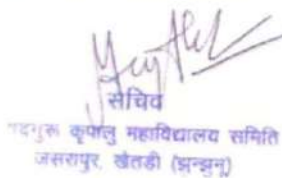 सचिव
कृपालु महाविद्यालय समिति
जसरापुर, खेतडी (झुन्झुनू)